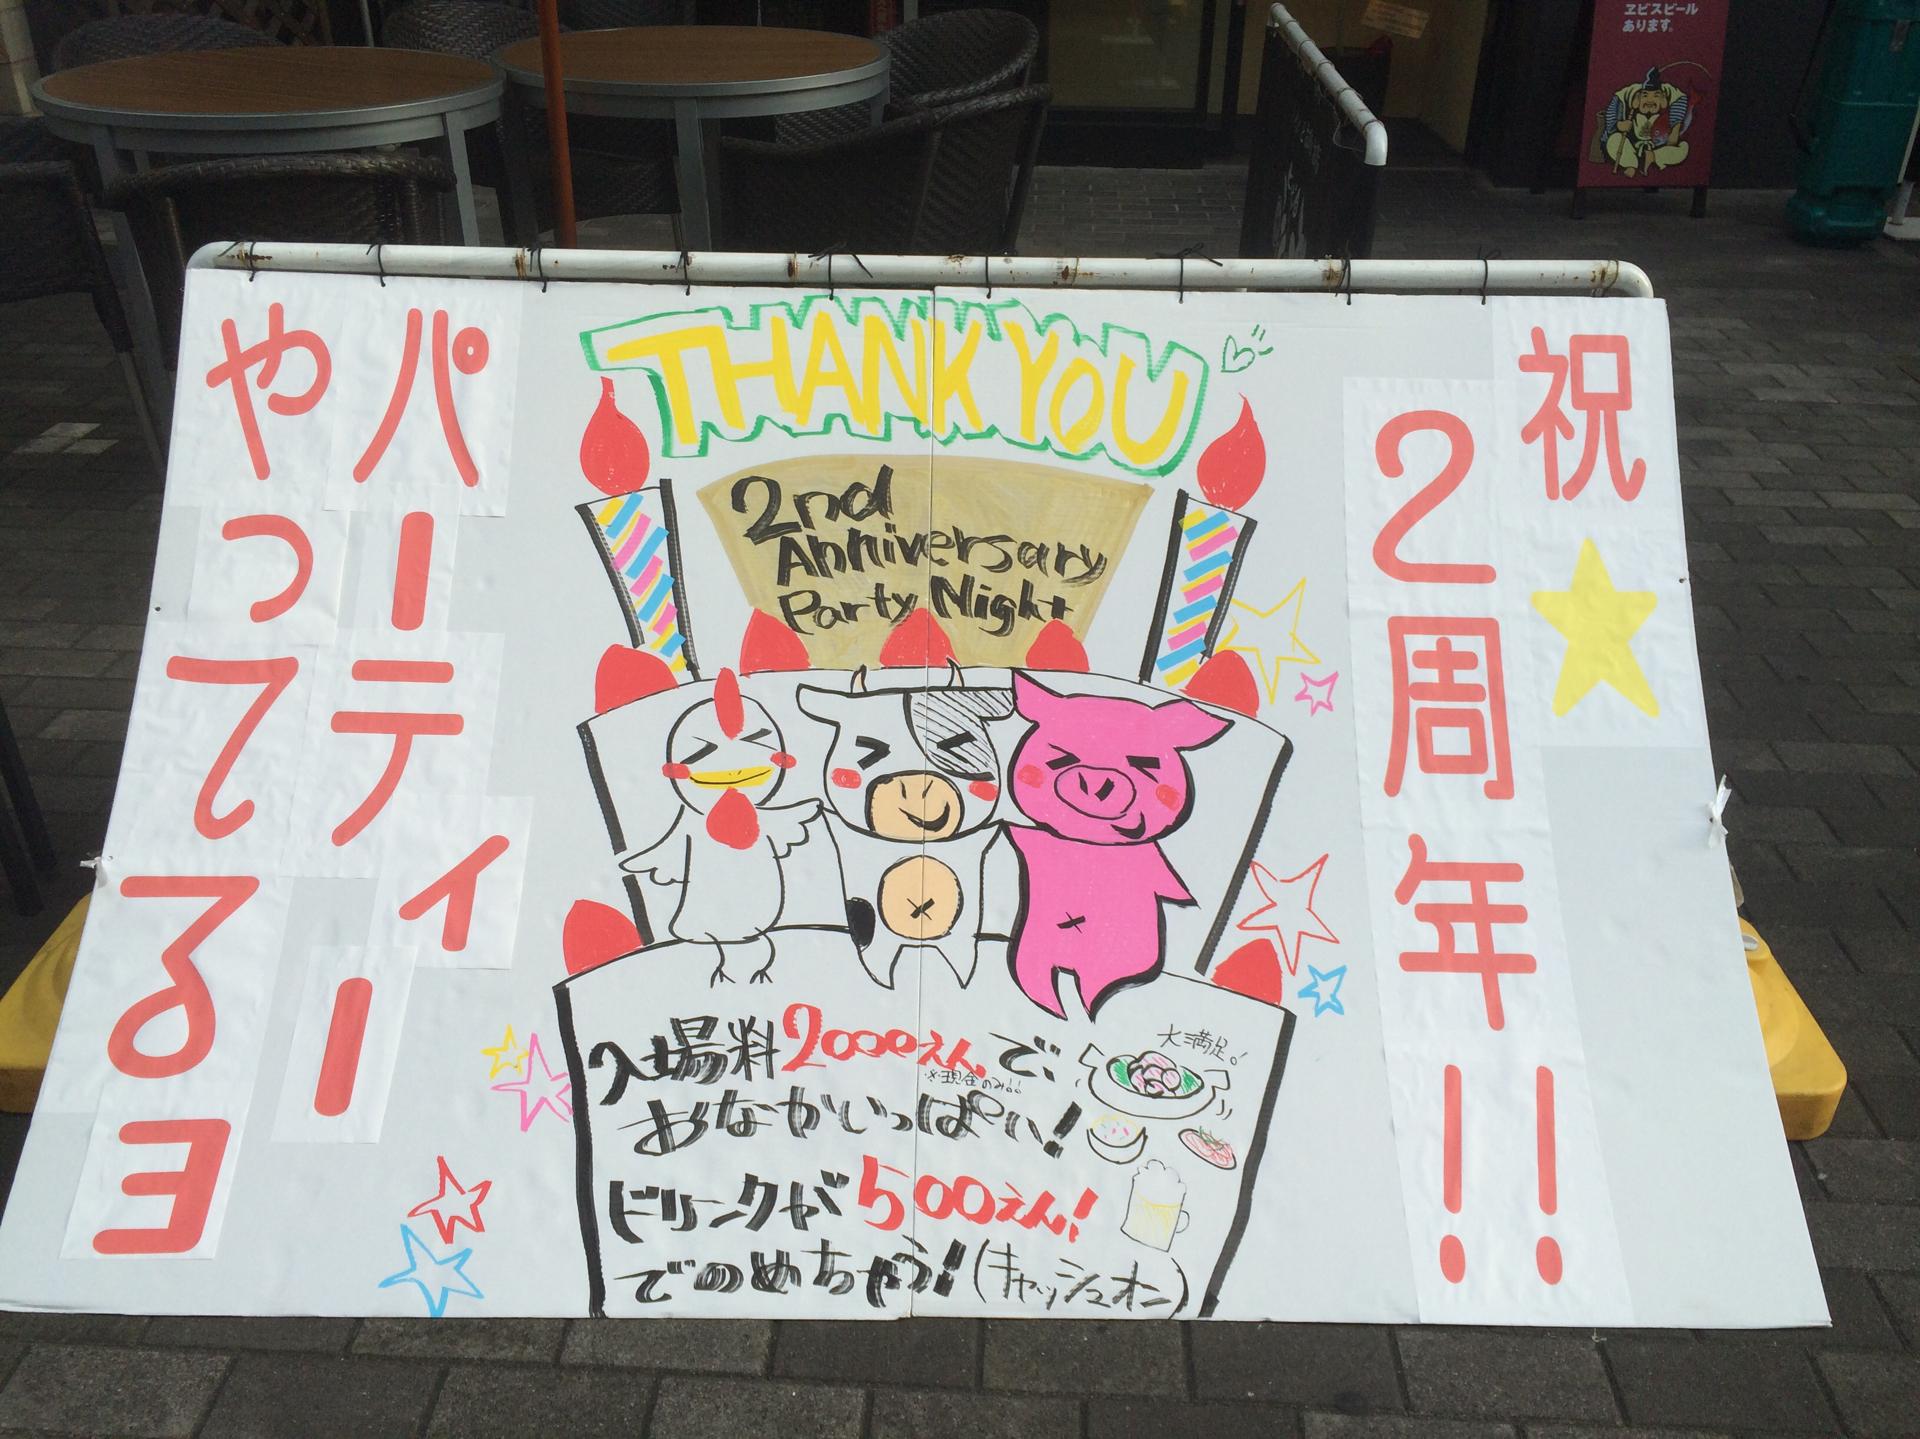 祝
2周年!!
パーティー
やってるヨ
THANK YOU
2nd
Anniversary
Party Night
入場料2000えんで、
※現金のみ!!
おなかいっぱい!
大満足!
ドリンクが500えん!
でのめちゃう!(キャッシュオン)
ヱビスビール
あります。